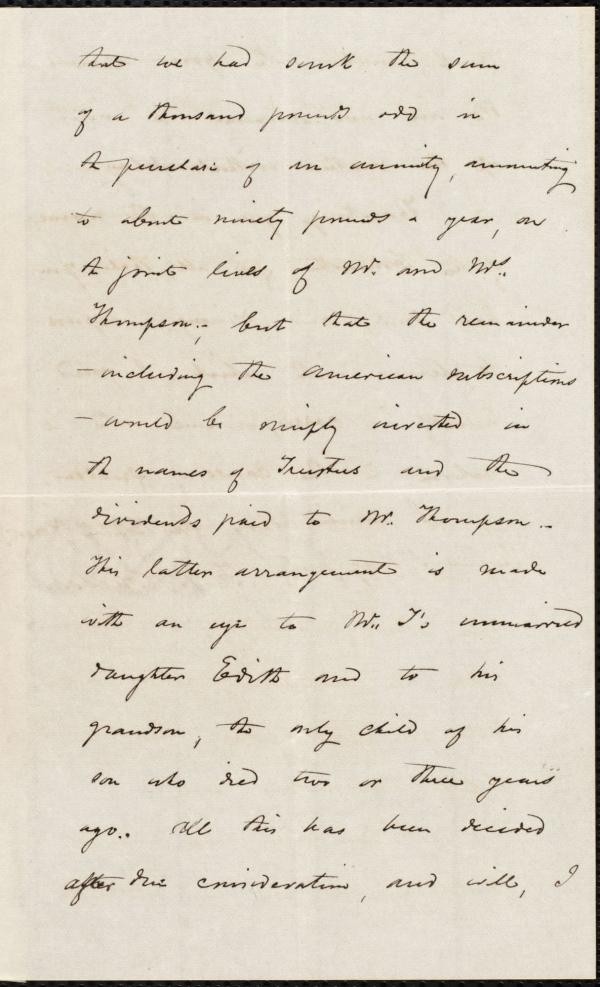 that we had sunk the sum
of a thousand pounds odd in
the purchase of an annuity, amounting
to about ninety pounds a year, on
the joint lives of Mr. and Mrs.
Thompson; but that the remainder
- including the American subscriptions
- would be simply invested in
the names of Trustees and the
dividends paid to Mr. Thompson.
This latter arrangement is made
with an eye to Mr. T's unmarried
daughter Edith and to his
grandson, the only child of his
son who died two or three years
ago. All this has been decided
after due consideration, and will, I